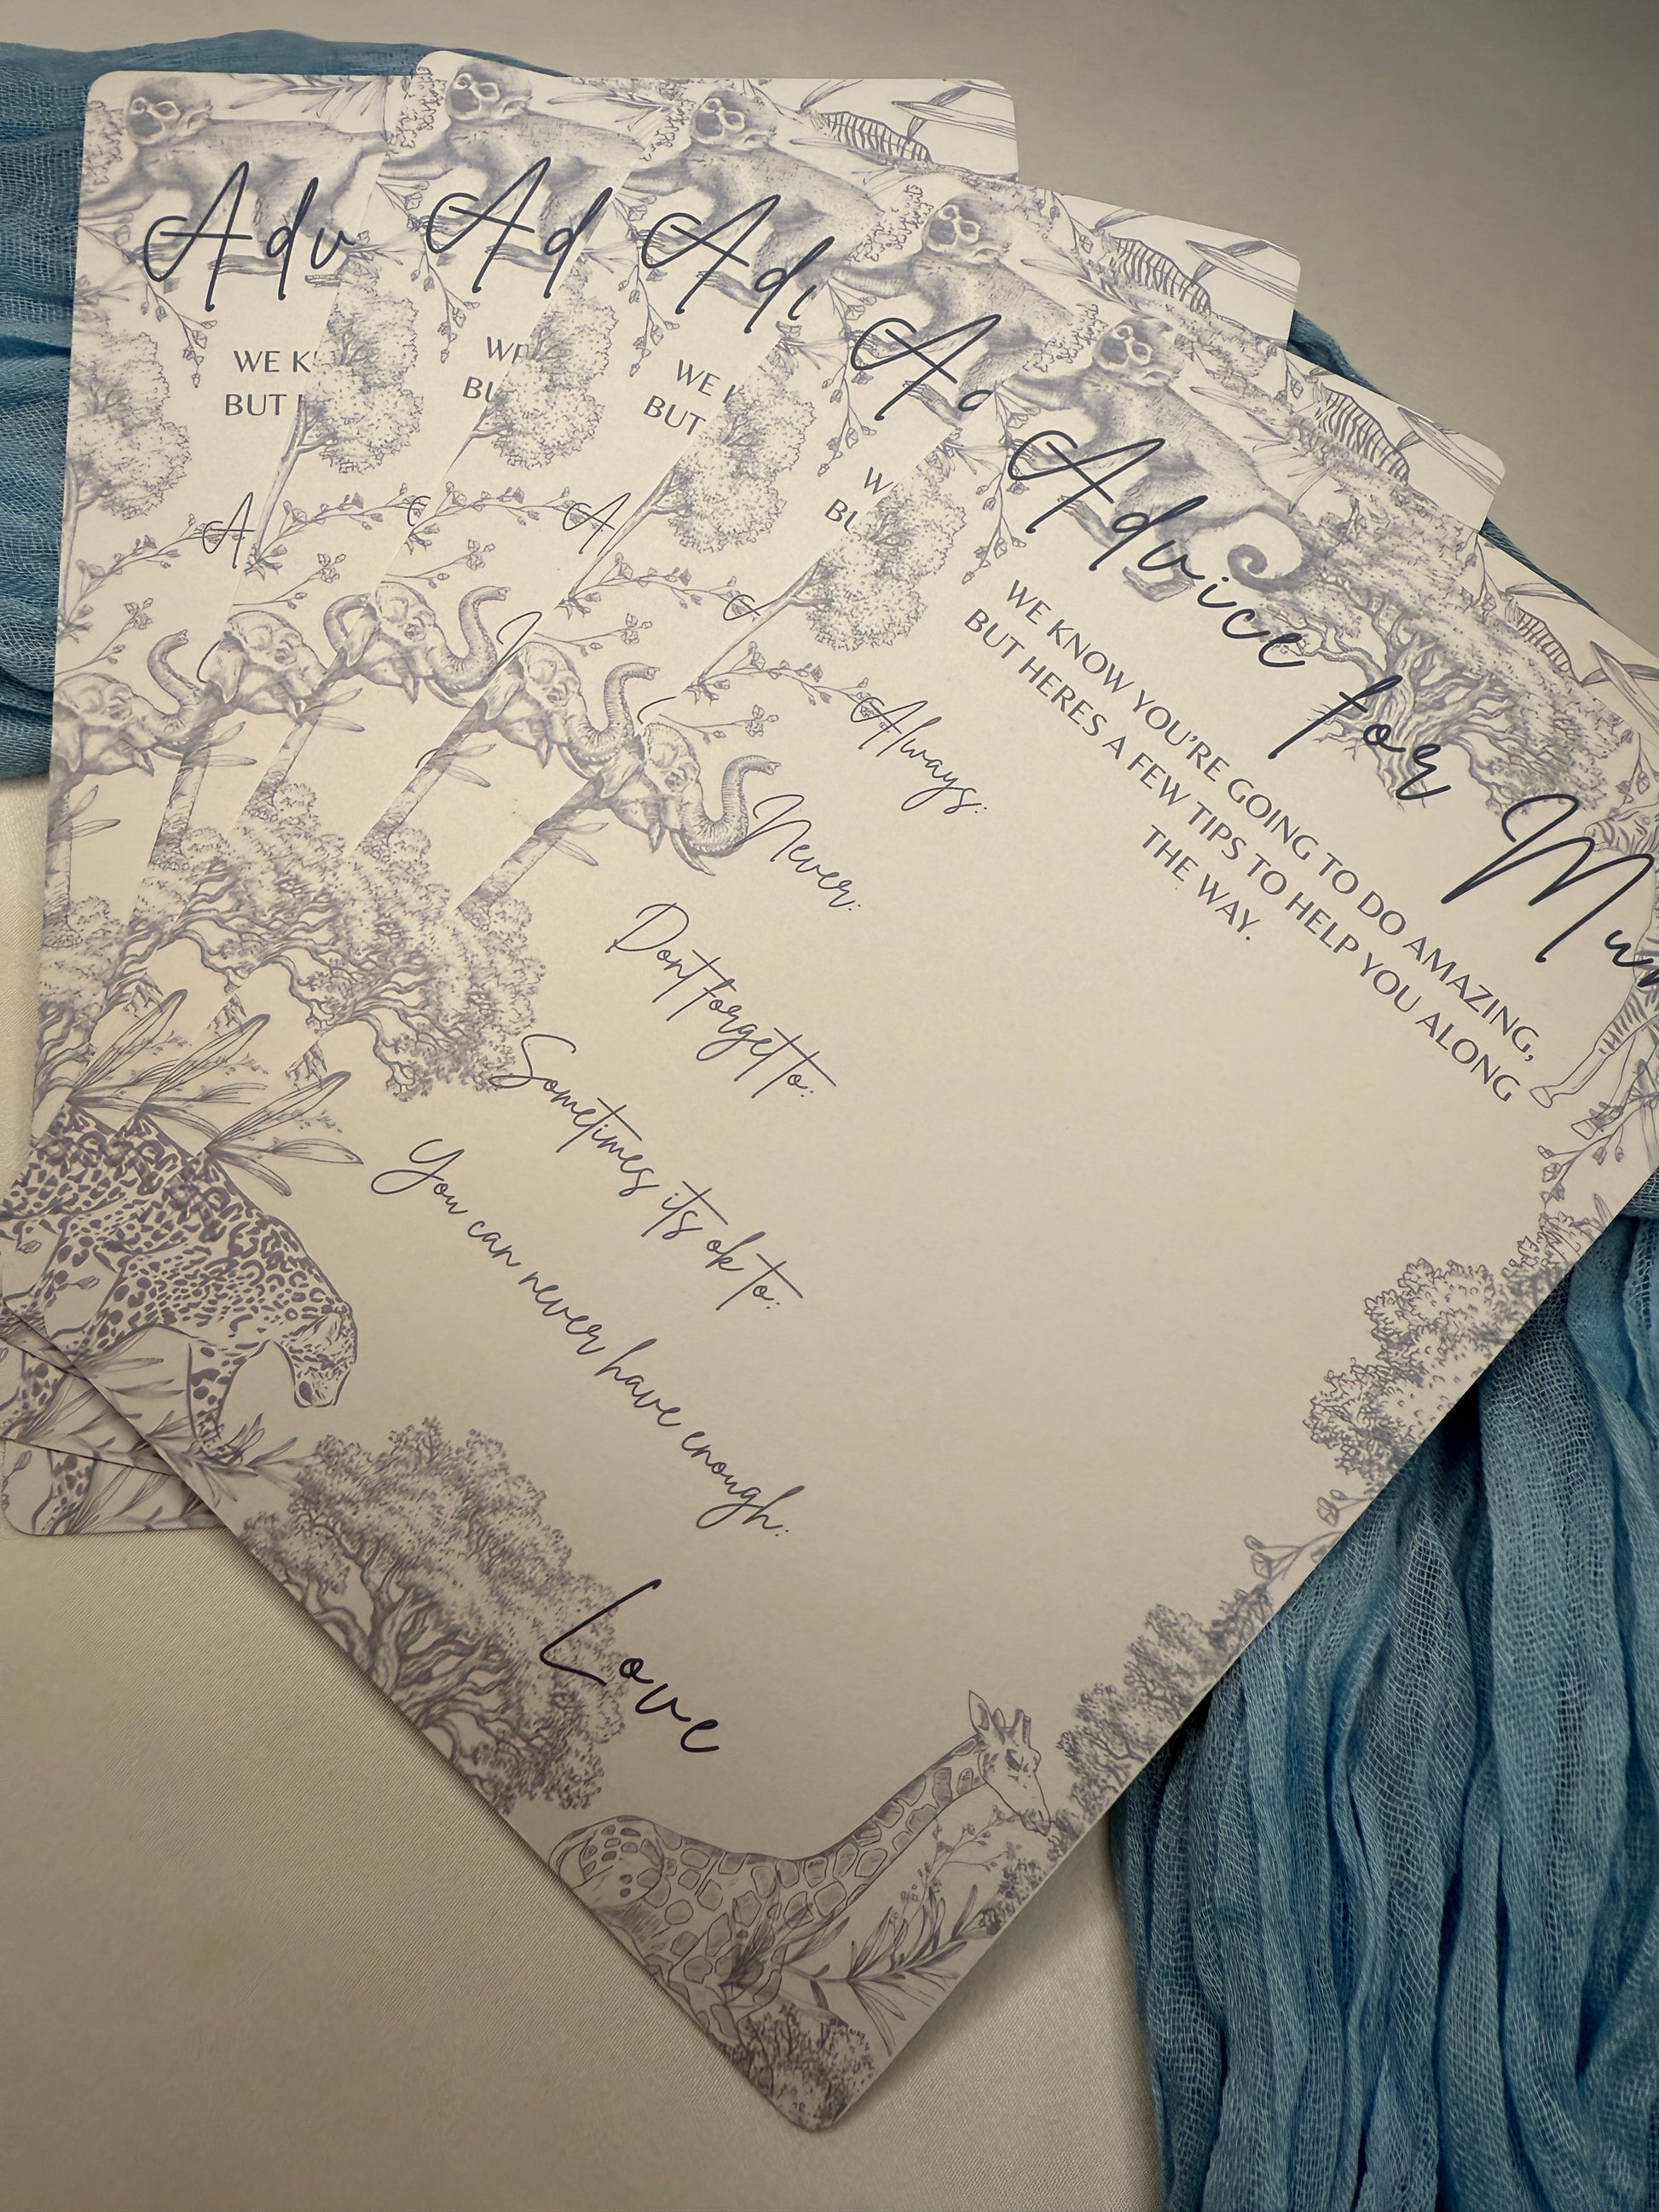 Adv
WE K
BUT
A
Ad
WE
BU
Adi
WE
BUT
A
Ad
W
BU
Advice for Mum
WE KNOW YOU'RE GOING TO DO AMAZING,
BUT HERES A FEW TIPS TO HELP YOU ALONG
THE WAY.
Always:
Never:
Dont forget to:
Sometimes its ok to:
You can never have enough:
Love